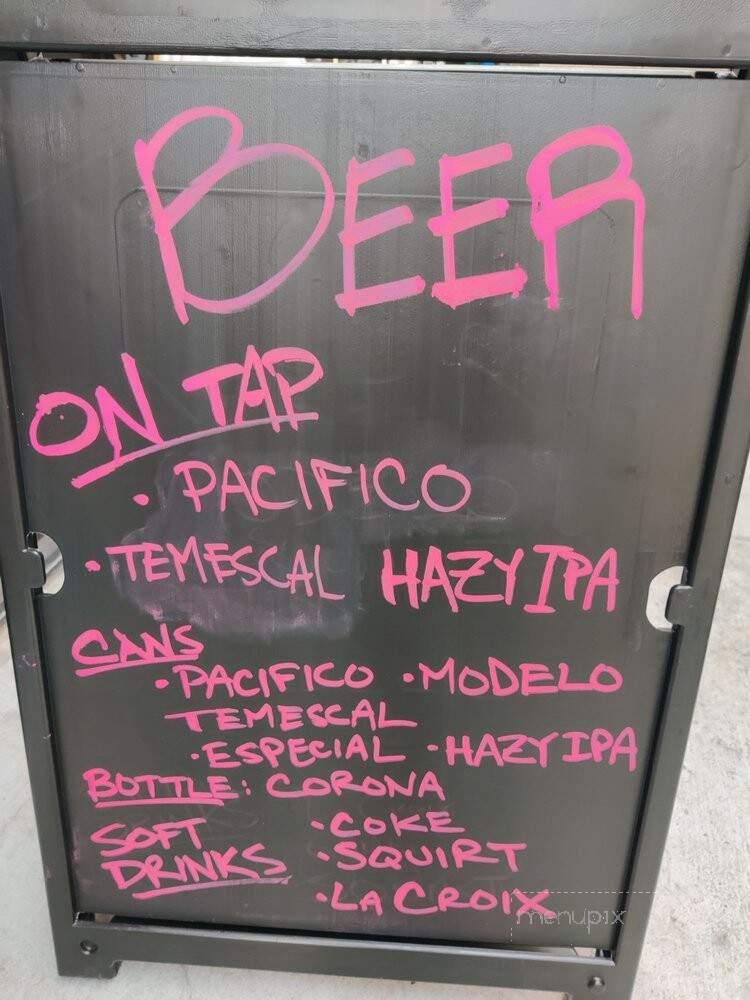 BEER
ON TAP
• PACIFICO
• TEMESCAL HAZY IPA
CANS
• PACIFICO • MODELO
TEMESCAL
• ESPECIAL • HAZY IPA
BOTTLE: CORONA
SOFT DRINKS
• COKE
• SQUIRT
• LA CROIX
menupix